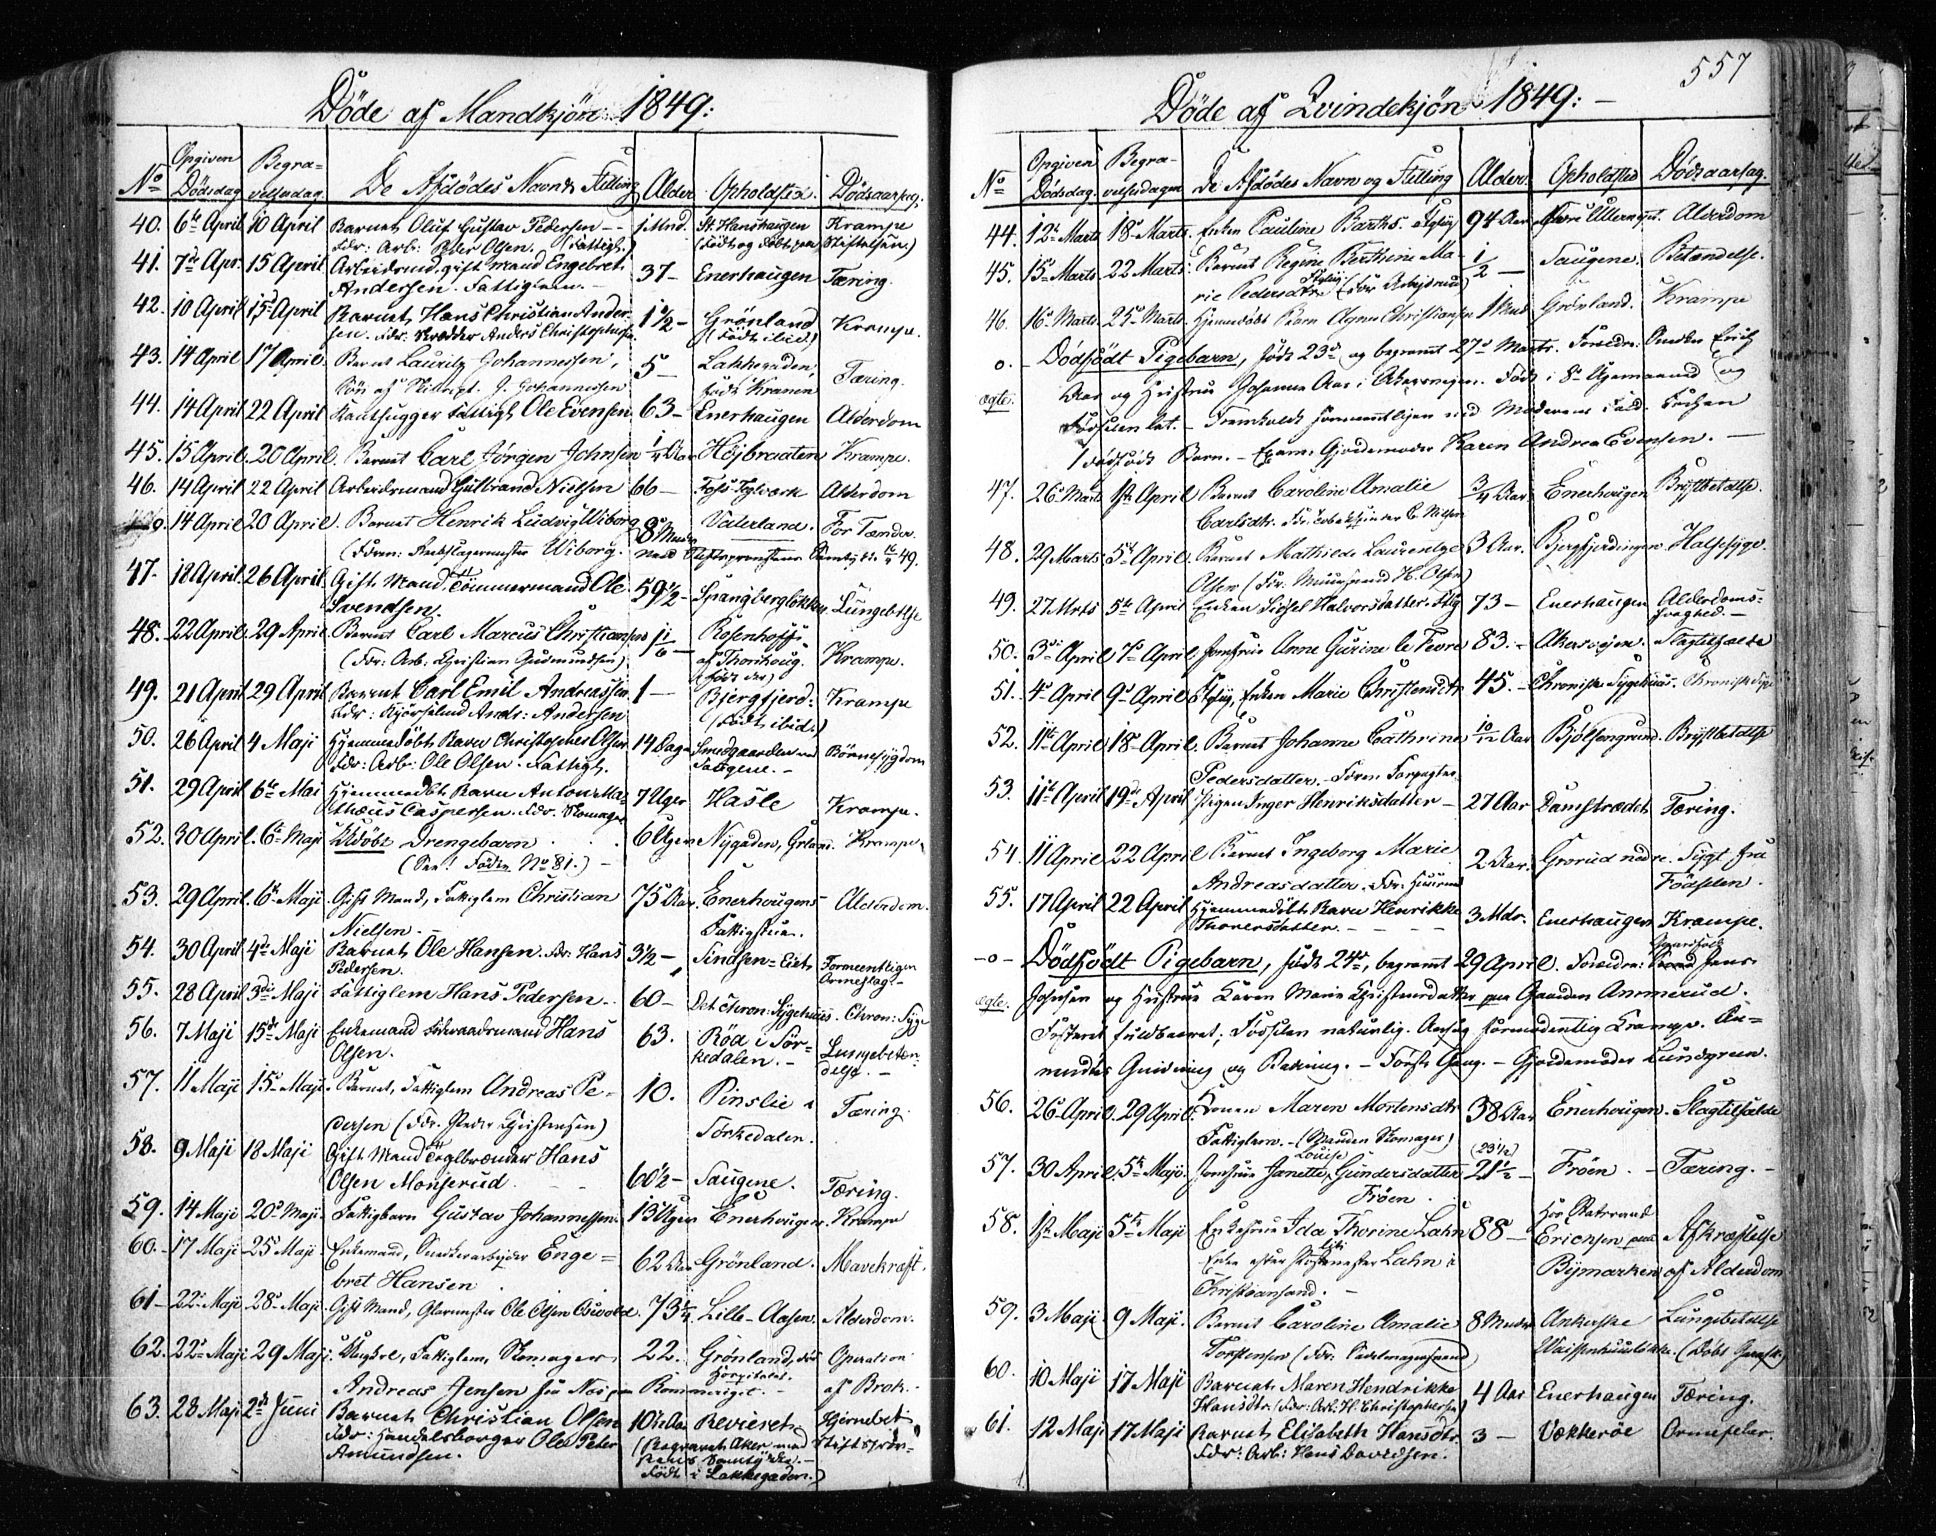 Döde af Mandkjön 1849:
No Opgiven Dödsdag Begravelsedag. De Afdödes Navn & Stilling Alder. Opholdsted. Dödsaarsag.
40. 6te April 10 April Barnet Oluf Gustav Pedersen 1 Mnd. St. Hanshaugen Krampe
Fdr: Arb: Peder Olsen. (Fattigl.) (Födt og döbt paa Stiftelsen.)
41. 7de Apr. 15 April Arbeidsmd, gift Mand Engebret
Andersen. Fattiglem. 37 - Enerhaugen Tæring.
42. 10 April 15de April Barnet Hans Christian Ander-
sen. Fdr: Skrædder Anders Christophersen. 1 1/2 - Grönland (Födt ibid.) Krampe.
43. 14 April 17 April. Barnet Lauritz Johannessen,
Sön af J. Johannessen 5 - Lakkegaden, födt Tæring.
44. 14 April 22 April Fattigl. Ole Evensen 63 - Enerhaugen Alderdom
45. 15 April. 20 April. Barnet Carl Jörgen Johnsen 1/4 Aar Höjbraaten Krampe.
46. 14 April 22 April Arbeidsmand Gulbrand Nielsen 66 - Foss Teglværk Alderdom
14 April 20 April. Barnet Henrik Ludvig Wiborg 8 Mndr Vaterland. For Tænder
(Fdren: Wiborg. 49.
47. 18 April. 26 April. Gift Mand, Tömmermand Ole
Svendsen. 59 1/2 - Spangbergløkken Lungebetlse
48. 22 April. 29 April. Barnet Carl Marcus Christiansen 1 1/6 Rosenhoff
(Fdr: Arb: Christian Gudmundsen) af Thorshoug. (födt der) Krampe.
49. 21 April 29 April Barnet Carl Emil Andreassen 1 - Bjergfjerd: Krampe
Fdr: Kjörsvend Andr: Andersen (Födt ibid.)
50. 26 April 4 Maji Hjemmedöbt Barn Christopher Olsen 14 Dage Smedgaarden ved Börnesygdom
Fdr: Arb: Ole Olsen. Fattigl. Saugene. -
51. 29 April 6te Mai Hjemmedöbt Barn Anton Ma-
thæus Caspersen. Fdr. Skomager 7 Uger Hasle Krampe.
52. 30 April. 6te Maji Udöbt Drengebarn 6 Ugen Nygaden, Grland. Krampe
(See! Födte No 81.) -
53. 29 April. 6te Maji Gift Mand, Fattiglem Christian 75 Aar. Enerhougens Alderdom.
Nielsen. Fattigstue.
54. 30 April 4de Maji Barnet Ole Hansen. Fdr: Hans
Pedersen. 3 1/2 - Sindsen-Eiet Formeentligen Ormeslag. -
55. 28 April 3di Maji Fattiglem Hans Pedersen. 60 - Det Chron: Sygehuus. Chron: Syge
56. 7 Maji 15de Maji Enkemand Hans
Olsen. 63. Röd i Sör-
kedalen. - Lungebeten-
delse. -
57. 11 Maji 15de Maji. Barnet, Fattiglem Andreas Pe-
dersen (Fdr. Peder Christensen) 10. Pinslie i
Sörkedalen. Tæring.
58. 9 Maji 18 Maji Gift Mand Teglbrænder Hans
Olsen Monserud 60 1/2 - Saugene. Tæring.
59. 14 Maji 20de Maji. Fattigbarn Gustav Johannessen. 13 Uger Enerhougen. Krampe
60. 17 Maji 25de Maji Enkemand, Enge-
bret Hansen 62 Aar Grönland. Mavekræft.
61 - 22de Maji 28de Maji Gift Mand, Glarmester Ole Olsen Oswold. 73 Lille-Aasen. Alderdom.
62. 22de Maji 29 Maji. Fattiglem, Skomager 22. Grönland, död Operation
Andreas Jensen fra Næs paa Romeriget. - Hospitalet. af Brok.
63. 28 Maji 2den Juni Barnet Christian Olsen 10 1/2 Aar Revieret. Hjernebet
Fdr: Handelsborger Ole Peter (Begravet Aker med Stiftspröv-
Amundsen. stens Samtykke. -
Födt i Lakkegaden.)
557
Döde af Qvindekjön 1849: -
No Opgiven Dödsdag. Begravelsesdagen De Afdödes Navn og Stilling Alder Opholdsted Dödsaarsag.
44. 12te Marts 18de Marts. Enken Pauline Barths. Fattigl 94 Aar Alderdom
45. 15de Marts. 22 Marts. Barnet Regine Berthine Ma-
rie Pedersdtr. (Fdr. Arbejdsmd) 1/2 - Saugene. Betændelse.
46. 16de Marts. 25de Marts. Hjemmedöbt Barn Agnes Christiansen 1 Mnd. Grönland. Krampe
o. - Dödfödt Pigebarn, födt 23de og begravet 27de Marts. Forældre:
ægte. Aas og Hustrue Johanne Aas i Akersvejen. Födt i 8de Ugemaaned og
Födselen let. - Fremkaldt formeentligen ved Moderens Fald.
1 födfödt Barn. - Exam: Gjordemoder Karen Andrea Evensen. -
47. 26de Marts 1ste April Barnet Caroline Amalie
Carlsdtr. 3/4 Aar. Enerhaugen Brystbetlse.
48. 29 Marts. 5te April. Barnet Mathilde Laurentze
Olsen (Fdr: Muursvend H. Olsen) 3 Aar. Bjergfjerdingen Halssyge.
49. 27 Mrts 5te April Enken Sidsel Halvorsdatter. Fttg 73 - Enerhaugen Alderdoms-
svaghed -
50. 3die April. 7de April. Jomfrue Anne Gurine le Fevre 83. - Akersvejen. Slagtilfælde
51. 4de April 9de April Fattig, Enken Marie Christensdtr 45. - Chroniske Sygehuus. Chronisk Syge
52. 11te April 18de April. Barnet Johanne Cathrine 10/12 Aar Bjölsengrund. Brystbetlse
Pedersdatter. - Faren Forpagter.
53. 11te April 19de April Pigen Inger Henriksdatter - 27 Aar Damstrædet Tæring.
54. 11 April 22 April Barnet Ingeborg Marie
Andreasdatter. Fdr: Huusmd 2 Aar. Grorud nedre. Sygt fra
Födselen.
55. 17 April 22 April Hjemmedöbt Barn Henrikke
Thoresdatter. 3 Mdr. Enerhaugen Krampe.
- o - Dödfödt Pigebarn, födt 24de, begravet 29 April. Forældre: Gaardfolk Jens
ægte. Johnsen og Hustrue Karen Marie Christensdatter paa Gaarden Ammerud.
Fosteret fuldbaaret; Födselen naturlig. Aarsag formodentlig Krampe. An-
vendtes Gnidning og Badning. - Förste Gang. - Gjordemoder Lundgreen.
56. 26de April. 29 April. Konen Maren Mortensdtr 38 Aar Enerhougen. Slagtilfælde
Fattiglem. - (Manden Skomager)
57. 30 April. 5te Maji. Jomfrue Janette Louise Gundersdatter
Fröen. (23 1/2) 21 1/2 - Fröen. - Tæring. -
58. 1ste Maji 5te Maji Enkefrue Ida Thorine Lahn 88 - hos Ericksen paa Afkræftelse
Enke efter Postmester Lahn i Bymarken af Alderdom
Christiansand. -
59. 3 Maji 9 Maji. Barnet Caroline Amalie 8 Mndr Ankerske Lungebetlse
Torstensen (Fdr: Sadelmagersvend) Waisenhuuslökke. (Döbt
60. 10 Maji 17 Maji Barnet Maren Hendrikke
Hansdtr. (Fdr: Arb. H. Christophersen) 4 Aar Enerhaugen Tæring.
61. 12 Maji 17 Maji Barnet Elisabeth Hansdtr. 3 - Vækkeröe Ormefeber.
Fdr: Arb: Hans Davidsen.